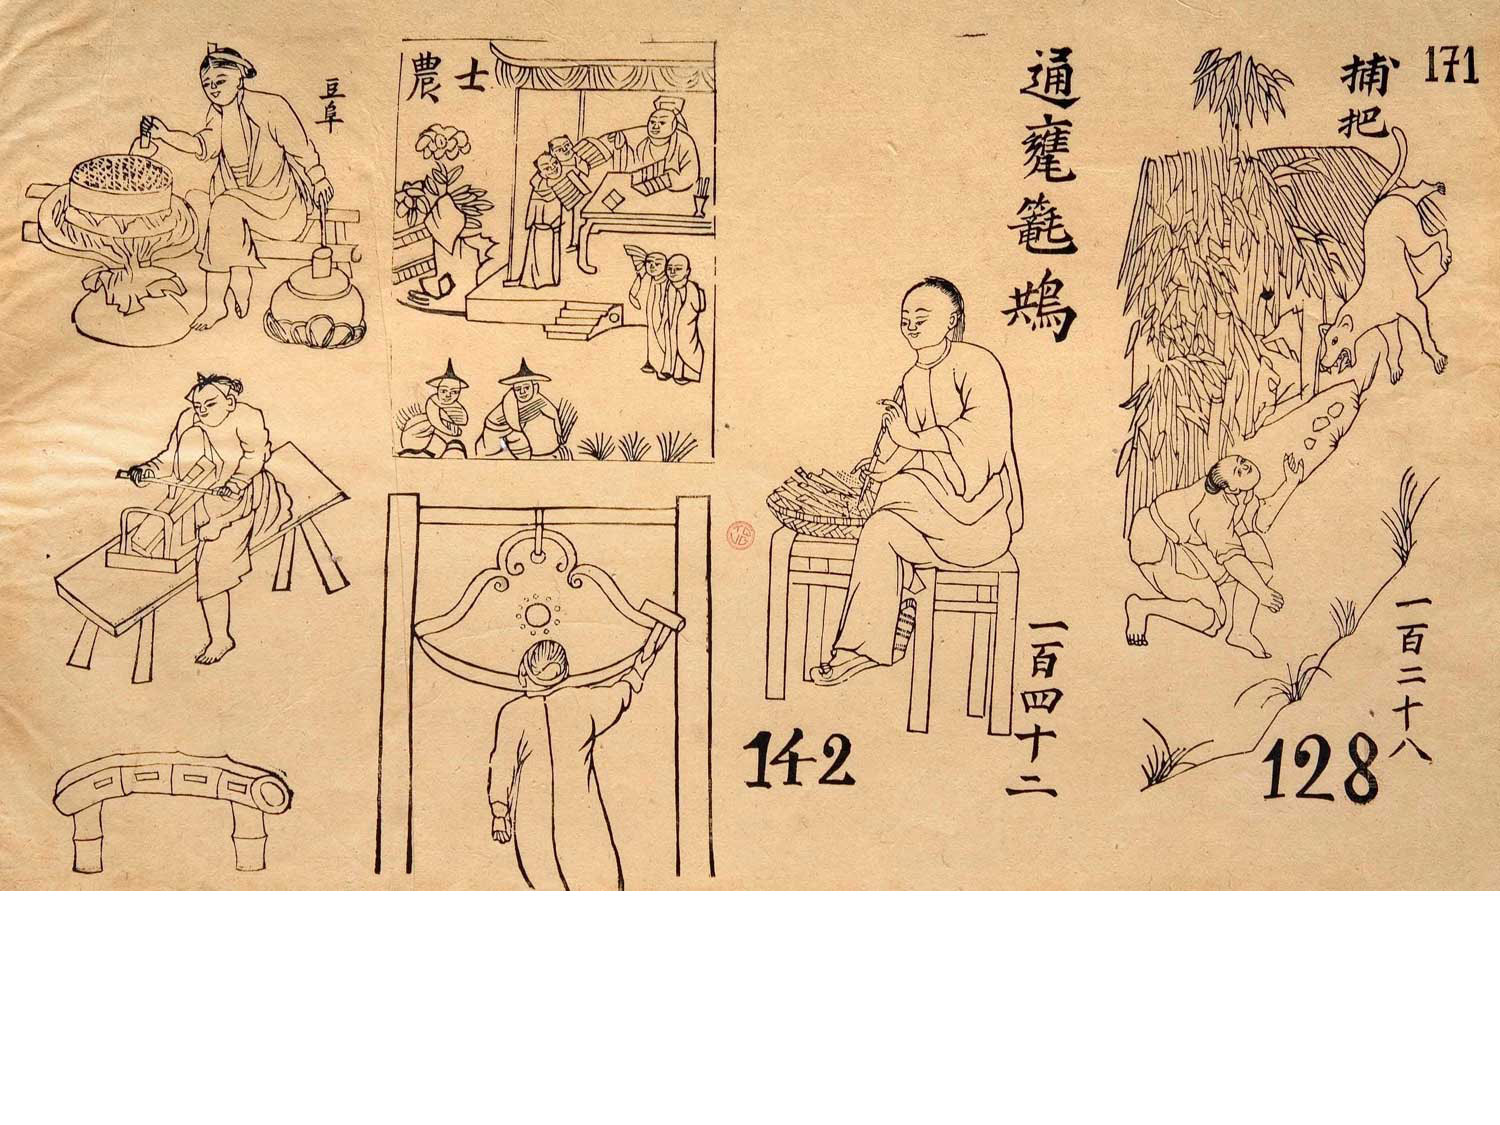 171
捕把
一百二十八
128
通
一百四十二
142
士農
豆阜